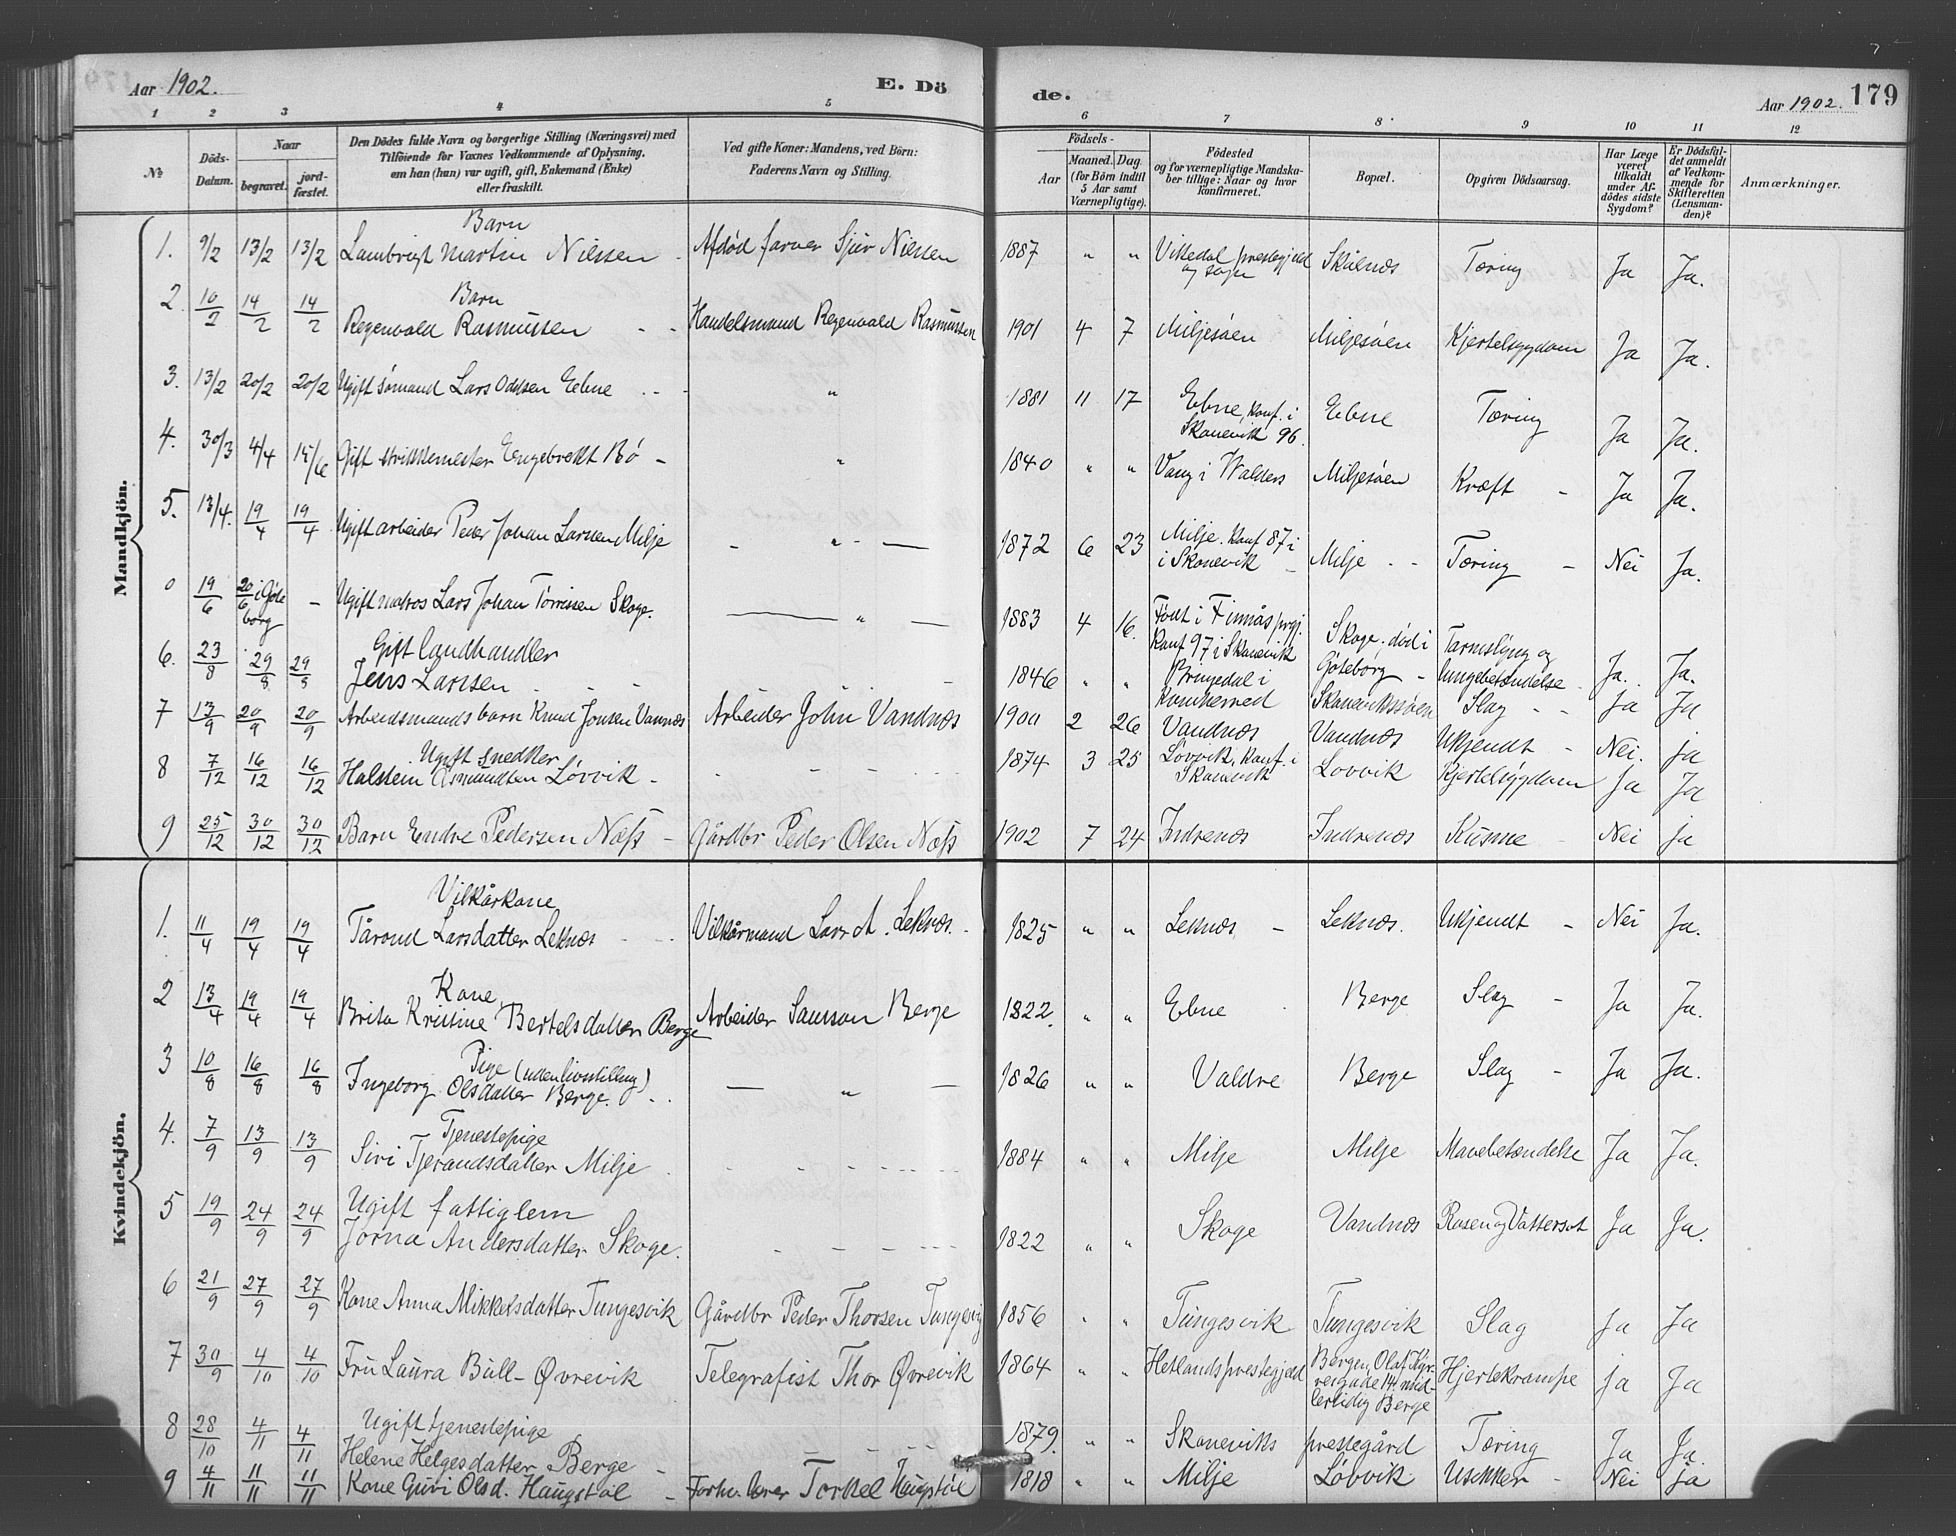 Aar 1902.
E. Dö
de.
Aar 1902. 179
1 2 3 4 5 6 7 8 9 10 11 12
№
Döds-Datum.
Naar
begravet.
jord-fæstet.
Den Dödes fulde Navn og borgerlige Stilling (Næringsvei) med
Tilföiende for Voxnes Vedkommende af Oplysning.
om han (hun) var ugift, gift, Enkemand (Enke)
eller fraskilt.
Ved gifte Koner: Mandens, ved Börn:
Faderens Navn og Stilling.
Födsels-
Aar
Maaned. Dag
(for Börn indtil
5 Aar samt
Værnepligtige).
Födested
og for værnepligtige Mandska-
ber tillige: Naar og hvor
konfirmeret.
Bopæl.
Opgiven Dödsaarsag.
Har Læge
været
tilkaldt
under Af-
dödes sidste
Sygdom?
Er Dödsfal-
det anmeldt
af Vedkom-
mende for
Skifteretten
(Lensman-
den)?
Anmærkninger.
Mandkjön.
1. 9/2 13/2 13/2 Barn Lambrigt Martin Nilssen - Afdød farver Sjur Nilssen 1887 " " Vikedal prestegjeld og sogn Skålnæs Tæring Ja Ja.
2. 10/2 14/2 14/2 Barn Regenvald Rasmussen - - Handelsmand Regenvald Rasmussen 1901 4 7 Miljesøen Miljesøen Kjertelsygdom Ja Ja.
3. 13/2 20/2 20/2 Ugift sømand Lars Oddsen Ebne " 1881 11 17 Ebne, konf. i Skonevik 96. Ebne Tæring Ja Ja.
4. 30/3 4/4 15/6 Gift strikkemester Engebrekt Bö - " 1840 " " Vang i Walders Miljesøen Kræft - Ja Ja.
5. 13/4. 19/4 19/4 Ugift arbeider Peder Johan Larsen Milje - " - 1872 6 23 Milje. Konf 87 i i Skonevik - Milje - - Tæring - Nei Ja.
0 19/6 20/6 i Göteborg - Ugift matros Lars Johan Tørrissen Skoge. " 1883 4 16. Født i Finnås prgj. Konf 97 i Skonevik Skoge, død i Göteborg - Tarmslyng og lungebetændelse Ja. Ja.
6. 23/8 29/8 29/8 Gift landhandler Jens Larssen - - - 1846 " " i Skonevikssøen Slag - - Ja Ja
7 13/9 20/9 20/9 Arbeidsmands barn Knud Jonsen Vannæs Arbeider John Vandnæs 1900 2 26 Vandnæs Vandnæs Ukjendt - Nei. ja
8 7/12 16/12 16/12 Ugift snedker Halstein Asmundsen Løvvik - 1874 3 25 Løvvik, konf. i Skonevik Løvvik Kjertelsygdom Ja Ja
9 25/12 30/12 30/12 Barn Endre Pedersen Næss - Gårdbr Peder Olsen Næss 1902 7 24 Indrenæs Indrenæs Kusme - Nei ja
Kvindekjön.
1. 11/4 19/4 19/4 Vilkårkone Tårond Larsdatter Leknæs - - Vilkårmand Lars A. Leknæs. - 1825 " " Leknæs - Leknæs. Ukjendt - Nei Ja.
2 13/4 19/4 19/4 Kone Brita Kristine Bertelsdatter Berge Arbeider Samson Berge 1822. " " Ebne Berge Slag - Ja Ja.
3 10/8 16/8 16/8 Pige (uden livsstilling) Ingeborg Olsdatter Berge. - " - 1826 " " Valdre Berge Slag - Ja Ja.
4. 7/9 13/9 13/9 Tjenestepige Siri Tjerandsdatter Milje 1884 " " Milje Milje Mavebetændelse Ja Ja.
5 19/9 24/9 24/9 Ugift fattiglem Jorna Andersdatter Skoge. 1822 " " Skoge Vandnæs Rosen og Vattersot Ja Ja.
6 21/9 27/9 27/9 Kone Anna Mikkelsdatter Tungesvik Gårdbr Peder Thorsen Tungesvig 1856 " " Tungesvik Tungesvik Slag Ja Ja
7 30/9 4/10 4/10 Fru Laura Bull-Øvrevik Telegrafist Thor Øvrevik 1864 " Hetlands prestegjeld Bergen, Olaf Kyrreigade 14. midlertidig Berge Hjertekrampe ja Ja
8 28/10 4/11 4/11 Ugift tjenestepige Helene Helgesdatter Berge - 1879. " " Skoneviks prestegård Tæring Ja Ja.
9 4/11 11/11 11/11 Kone Guri Olsd. Haugstøl - Torkel Haugstøl 1818 " " Milje Løvvik Nei ja